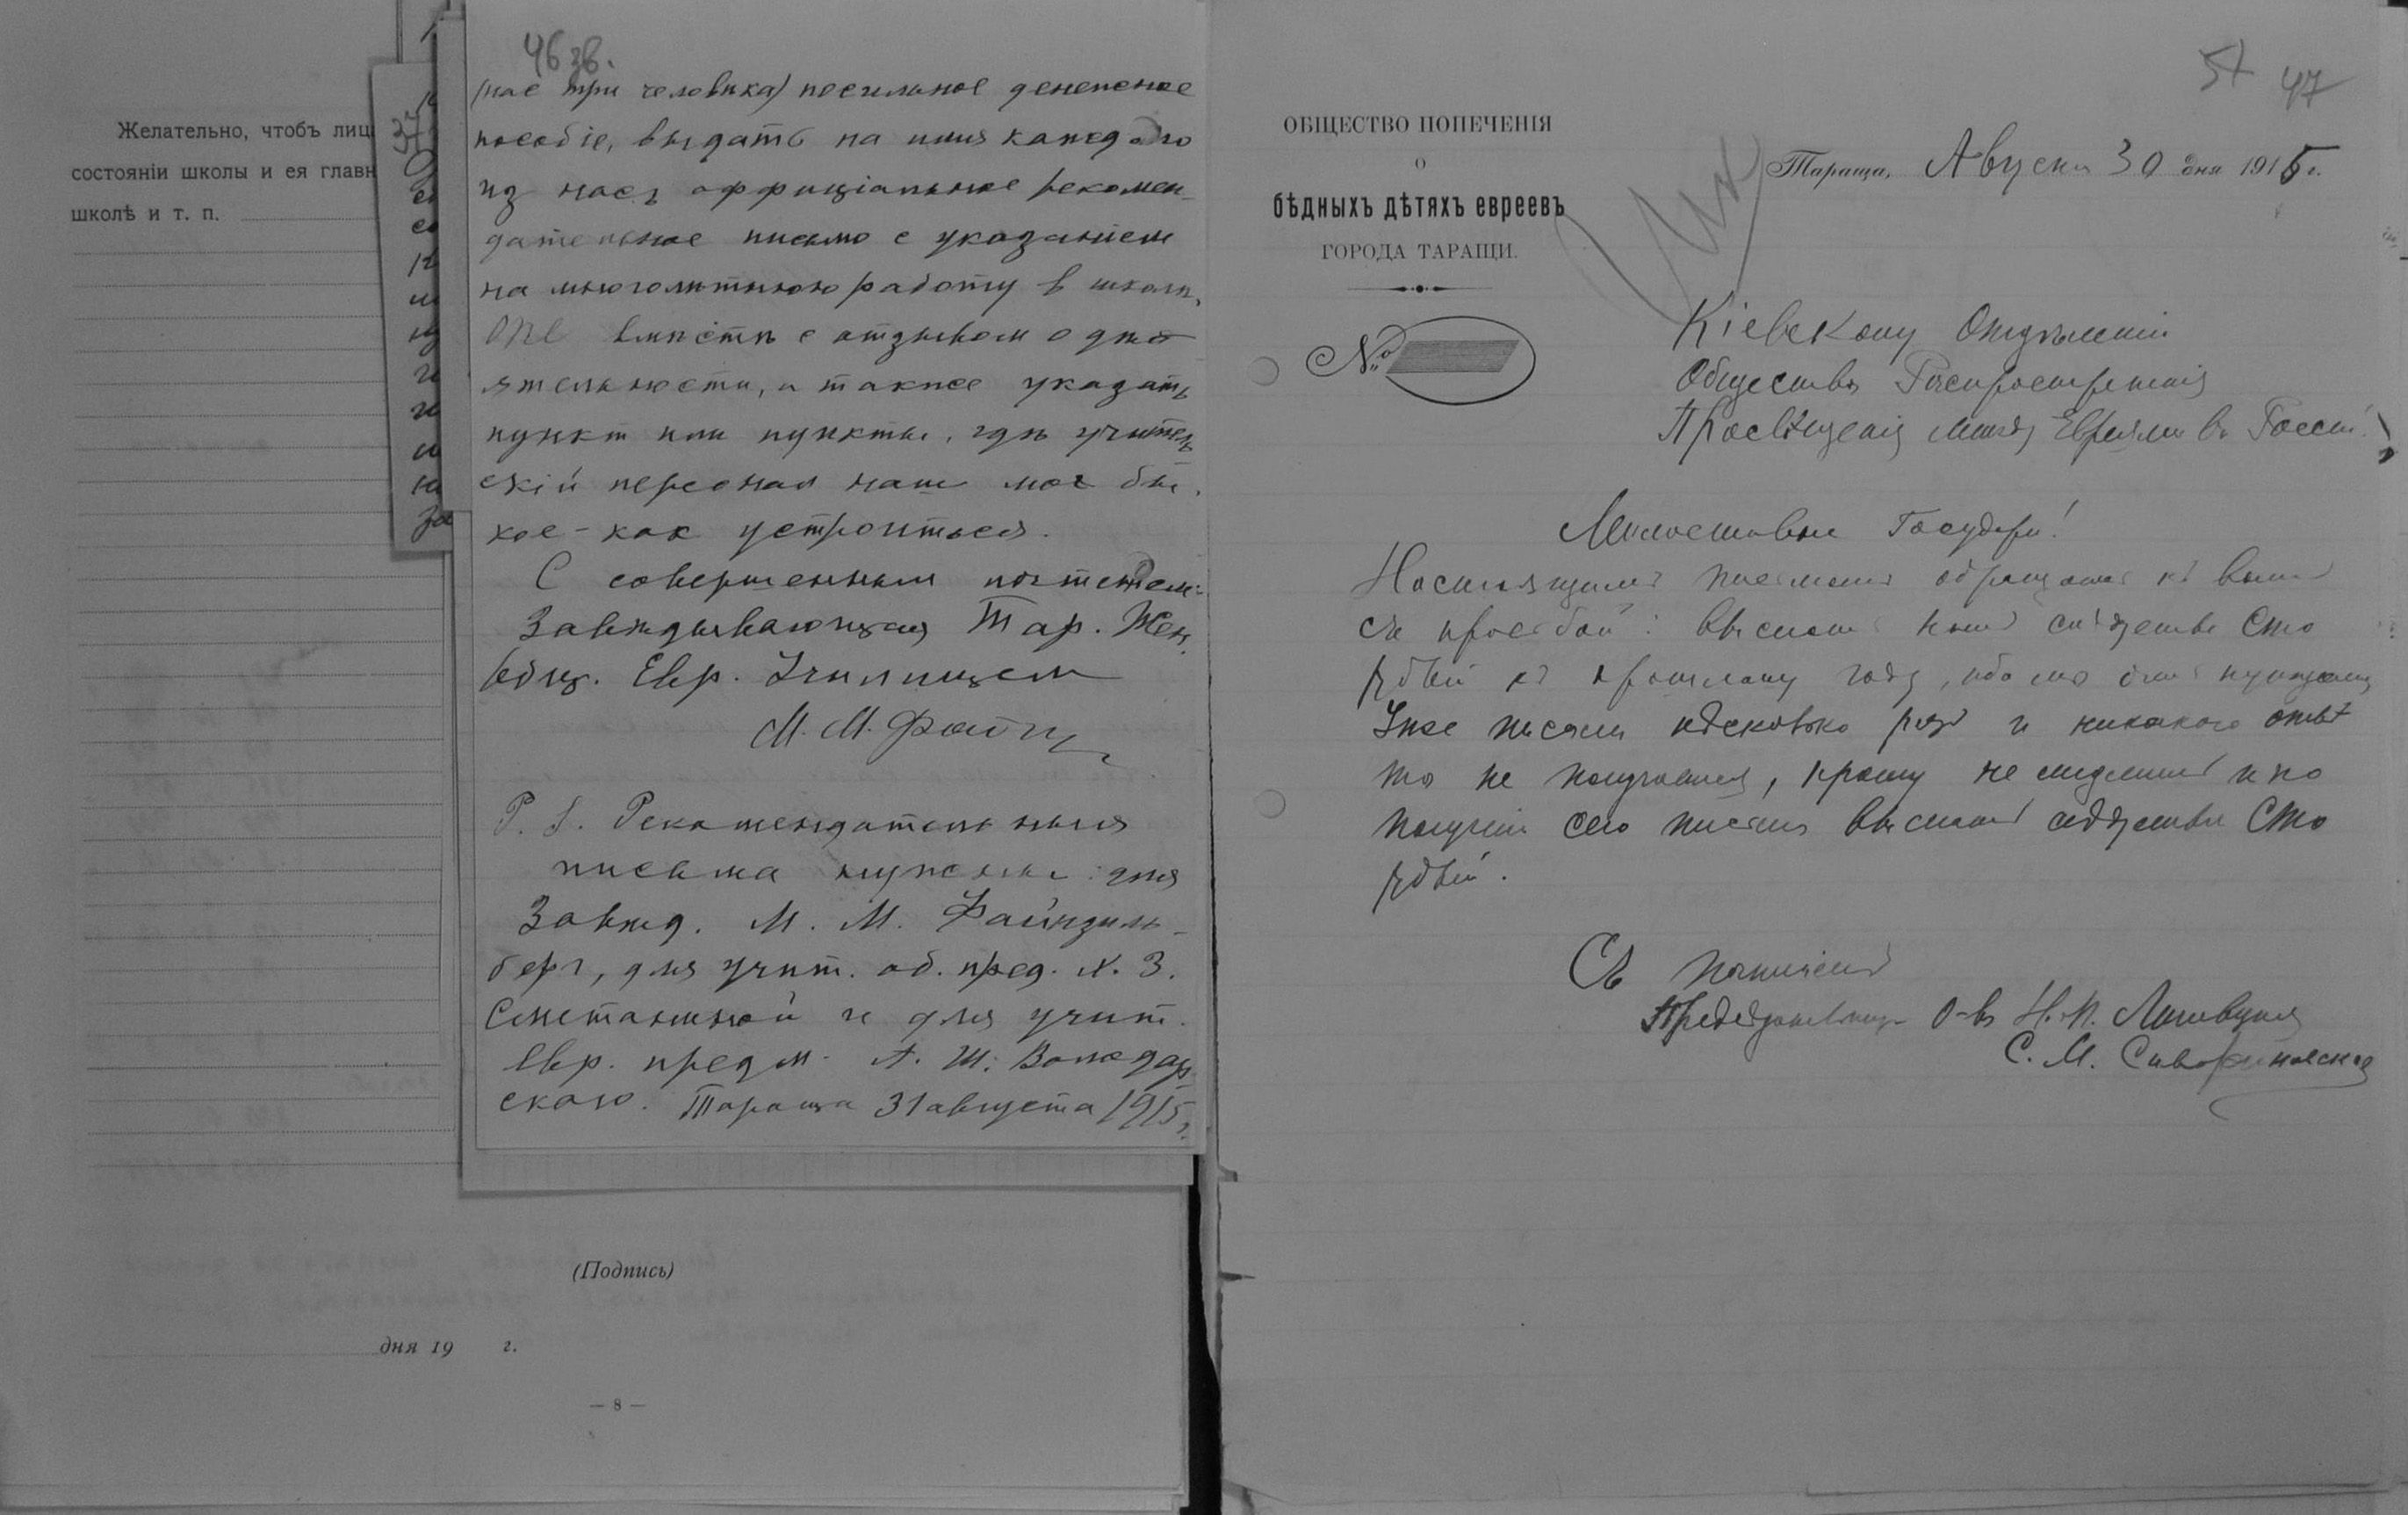 Желательно, чтобъ лиц
состоянiи школы и ея главн
школѣ и т. п.
(Подпись)
дня 19 г.
— 8 —
46 зв.
(нас три человѣка) посильное денежное
пособiе, выдать на имя каждого
из насъ оффицiальное рекомен-
дательное письмо с указанiем
на многолѣтнюю работу в школѣ
ОПЕ вмѣстѣ с отзывом о дѣя-
ятельности, а также указать
пункт или пункты, гдѣ учитель
скiй персонал наш мог бы
кое-как устроиться.
С совершенным почтенiем
Завѣдывающая Тар. Жен.
Общ. Евр. Училищем
М. М. Файнз
P. S. Рекомендательныя
письма нужны для
Завѣд. М. М. Файнзиль-
берг, для учит. об. пред. Х. З.
Сметанной и для учит.
Евр. предм. А. Ш. Володар
скаго. Тараща 31 августа 1915 г.
57 47
ОБЩЕСТВО ПОПЕЧЕНIЯ
О
БѢДНЫХЪ ДѢТЯХЪ ЕВРЕЕВЪ
ГОРОДА ТАРАЩИ.
№
Тараща, Августа 30 дня 1915 г.
Кiевскому Отдѣленiю
Общества Распространенiя
Просвѣщенiя между Евреями въ Россiи!
Милостивые Государи!
Настоящимъ письмомъ обращаюсь къ вамъ
съ просьбой: выслать намъ слѣдуемые Сто
рублей за прошлому году, ибо мы очень нуждаемся
Уже писали нѣсколько разъ и никакого отвѣ
та не получается, прошу не медлить и по
полученiи сего письма выслать слѣдуемые Сто
рублей.
Съ почтенiемъ
Предсѣдательница О-ва Н. П.
С. М.